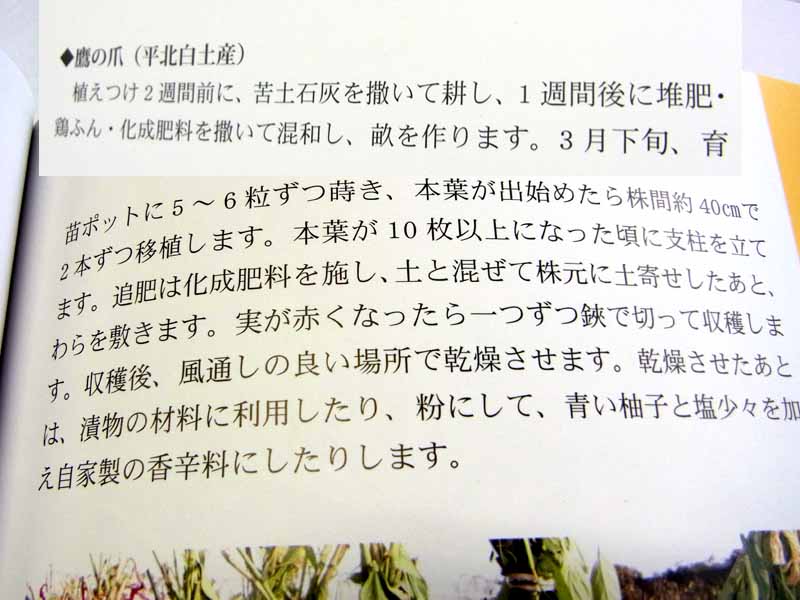 ◆鷹の爪（平北白土産）
植えつけ2週間前に、苦土石灰を撒いて耕し、1週間後に堆肥・
鶏ふん・化成肥料を撒いて混和し、畝を作ります。3月下旬、育
苗ポットに5～6粒ずつ蒔き、本葉が出始めたら株間約40cmで
2本ずつ移植します。本葉が10枚以上になった頃に支柱を立て
ます。追肥は化成肥料を施し、土と混ぜて株元に土寄せしたあと、
わらを敷きます。実が赤くなったら一つずつ鋏で切って収穫しま
す。収穫後、風通しの良い場所で乾燥させます。乾燥させたあと
は、漬物の材料に利用したり、粉にして、青い柚子と塩少々を加
え自家製の香辛料にしたりします。